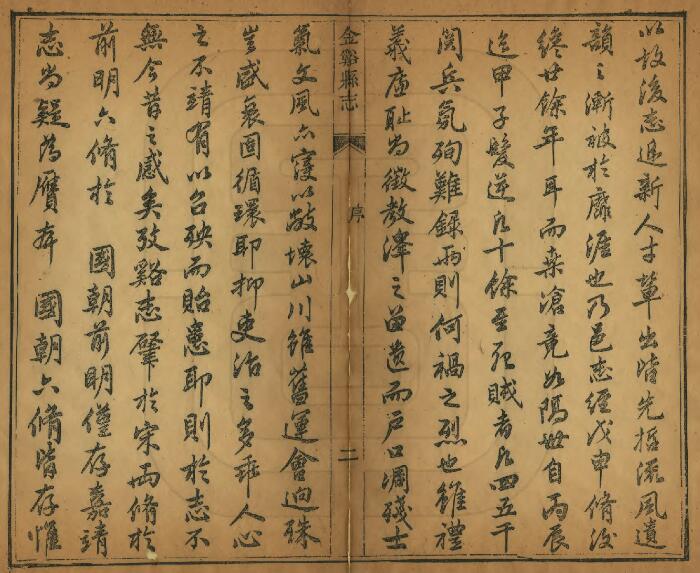 以故後志遞新人才輩出皆先哲流風遺
韻之漸被於靡涯也乃邑志經戊申修後
纔廿餘年耳而桑滄竟如隔世自丙辰
迄甲子髮逆凡十餘至死賊者凡四五千
閱兵氛殉難錄兩則何禍之烈也雖禮
義廉恥尚徵教澤之留遺而戶口凋殘士
金谿縣志
序
二
氣文風亦寖以敝壞山川雖舊運會迥殊
豈盛衰固循環耶抑吏治之多乖人心
之不靖有以召殃而貽患耶則於志不
無今昔之感矣攷谿志肇於宋兩脩於
前明六脩於 國朝前明僅存嘉靖
志尚疑為贗本 國朝六脩皆存惟